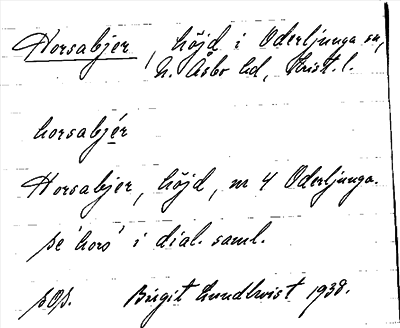 Horsabjer, höjd i Oderljunga sn,
N. Åsbo hd, Krist. l.
horsabjér
Horsabjer, höjd, nr 4 Oderljunga.
se 'hors' i dial. saml.
sOs. Birgit Lundkvist 1938.